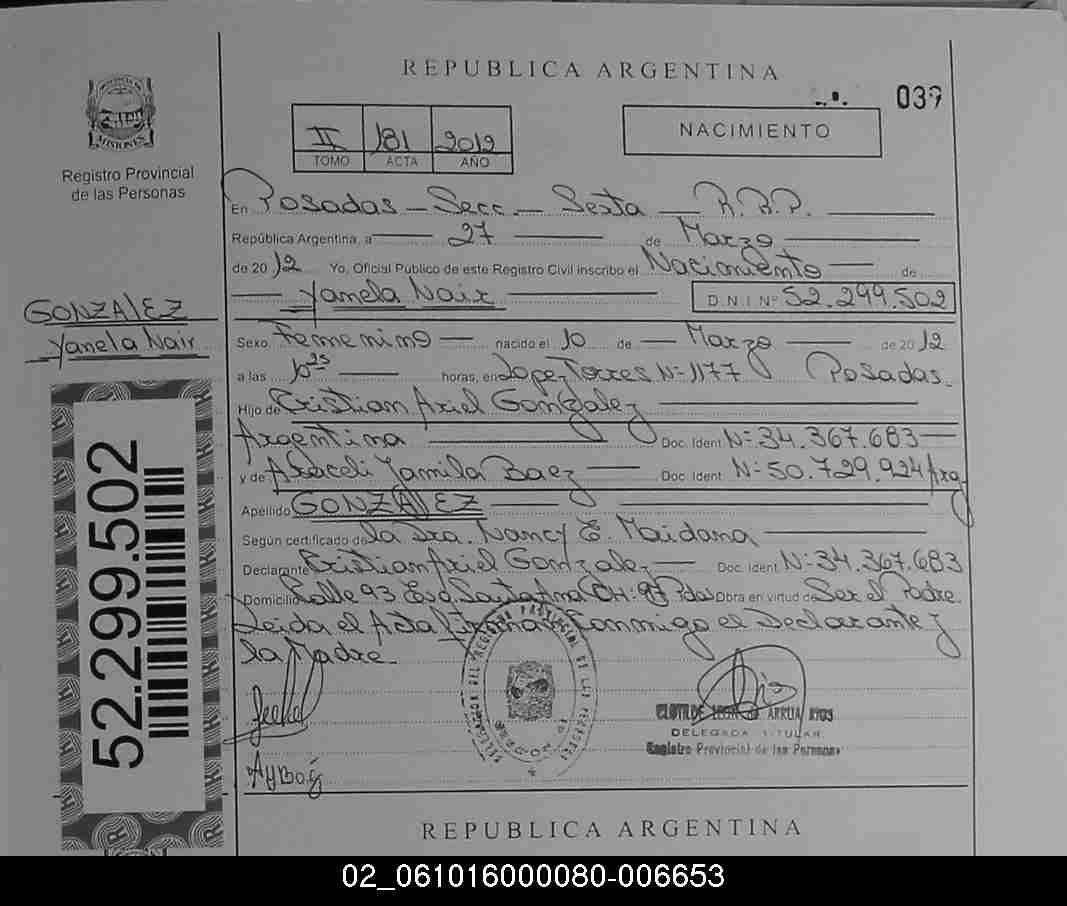 REPUBLICA ARGENTINA
039
II 181 2012
TOMO ACTA AÑO
NACIMIENTO
MISIONES
Registro Provincial
de las Personas
En Posadas - Secc. - Sexta - R.P.P.
República Argentina, a 27 de Marzo
de 2012 Yo, Oficial Público de este Registro Civil inscribo el Nacimiento de
Yanela Nair D.N.I. Nº 52.299.502
GONZALEZ
Yanela Nair
Sexo Femenino nacido el 10 de Marzo de 2012
a las 10 25 horas, en Lopez Torres Nº 1177 Posadas.
Hijo de Cristian Ariel Gonzalez
Argentina Doc. Ident. Nº 34.367.683
y de Araceli Yamila Baez Doc. Ident. Nº 50.729.924 Arg
Apellido GONZALEZ
Según certificado de la Dra. Nancy E. Maidana
Declarante Cristian Ariel Gonzalez Doc. Ident. Nº 34.367.683
Domicilio Calle 93 Esq. Santa Ana CH: Pdas Obra en virtud de Ser el Padre.
Leida el Acta Firman Conmigo el Declarante y
la Madre.
52.299.502
DELEGACION DEL REGISTRO PROVINCIAL DE LAS PERSONAS
CLOTILDE ARRUA RIOS
DELEGADA TITULAR
Registro Provincial de las Personas
AyBaez
REPUBLICA ARGENTINA
02_061016000080-006653